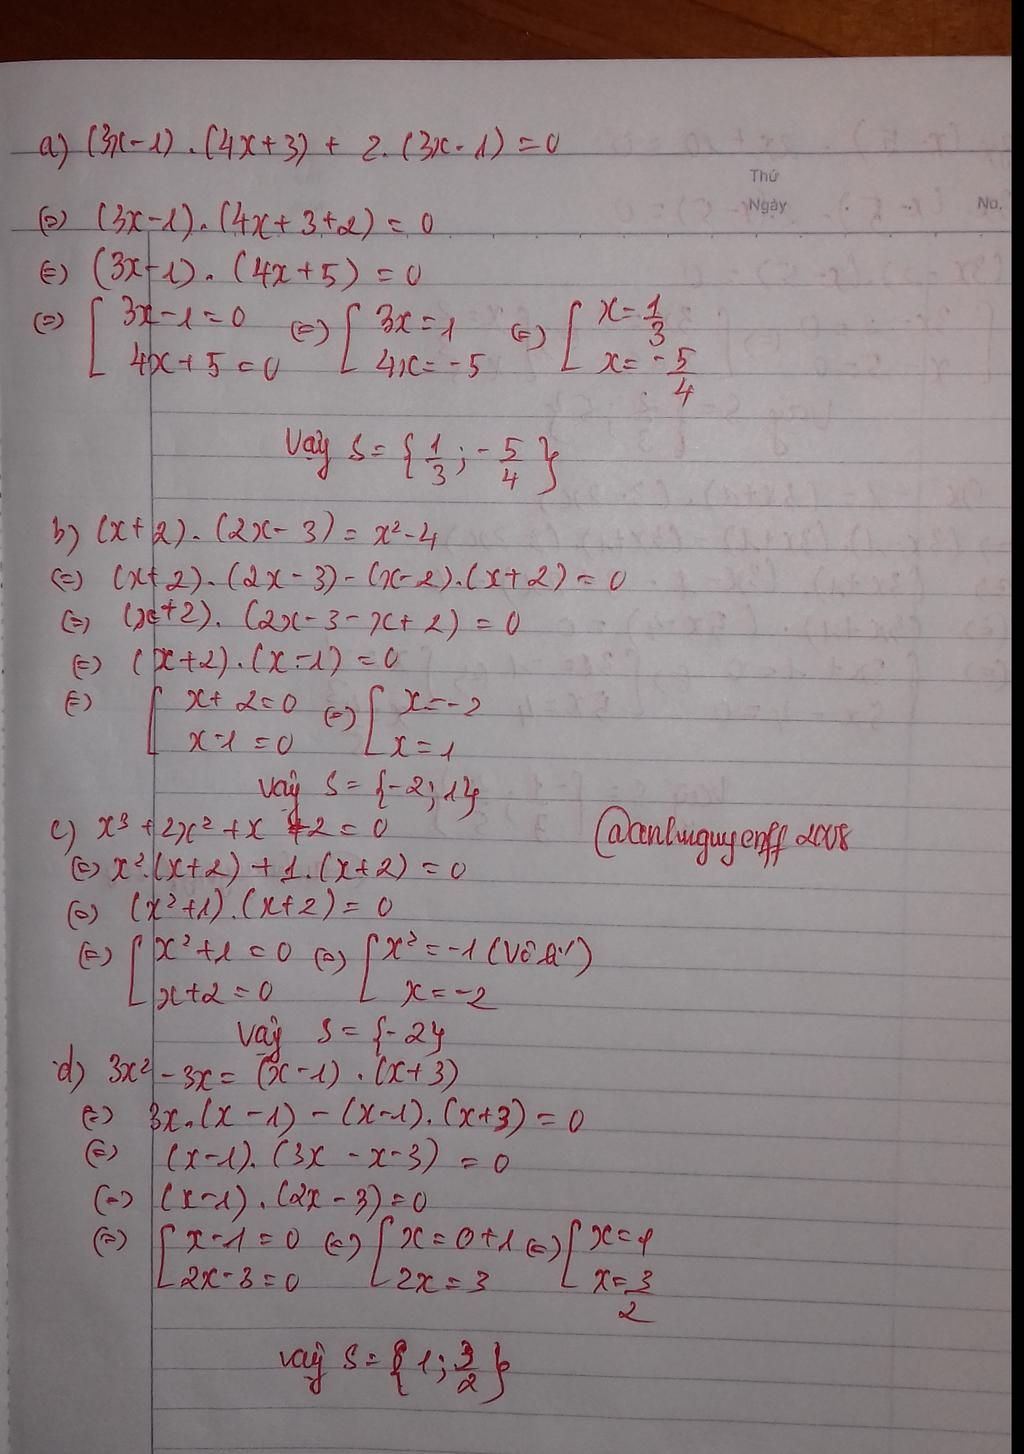 a) (3x-1).(4x+3) + 2.(3x-1) = 0
Thứ
Ngày
No.
(=) (3x-1).(4x+3+2) = 0
(=) (3x-1).(4x+5) = 0
(=) [ 3x-1=0 (=) [ 3x=1 (=) [ x=1/3
4x+5=0 4x=-5 x=-5/4
Vậy S={1/3; -5/4}
b) (x+2).(2x-3) = x²-4
(=) (x+2).(2x-3)-(x-2).(x+2) = 0
(=) (x+2).(2x-3-x+2) = 0
(=) (x+2).(x-1) = 0
(=) [ x+2=0 (=) [ x=-2
x-1=0 x=1
Vậy S={-2;1}
c) x³+2x²+x+2=0
@anhnguyenff2008
(=) x².(x+2)+1.(x+2) = 0
(=) (x²+1).(x+2) = 0
(=) [ x²+1=0 (=) [ x²=-1 (Vô lí)
x+2=0 x=-2
Vậy S={-2}
d) 3x²-3x=(x-1).(x+3)
(=) 3x.(x-1)-(x-1).(x+3) = 0
(=) (x-1).(3x-x-3) = 0
(=) (x-1).(2x-3)=0
(=) [ x-1=0 (=) [ x=0+1 (=) [ x=1
2x-3=0 2x=3 x=3/2
Vậy S={1; 3/2}